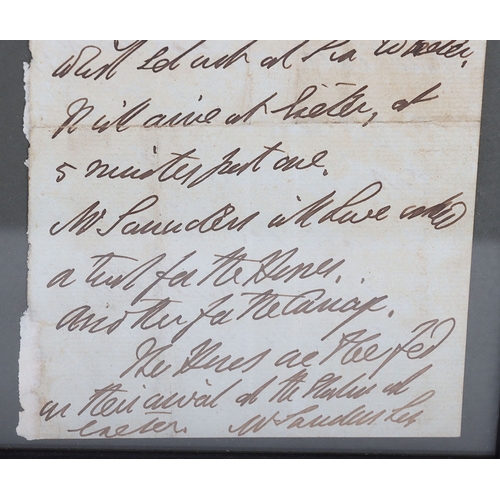 It will arrive at Exeter, at
5 minutes past one.
Mr Saunders will have
a truck for the Horses.
another for the Carriage.
The Horses are to be fed
on their arrival at the Station at
Exeter. Mr Saunders